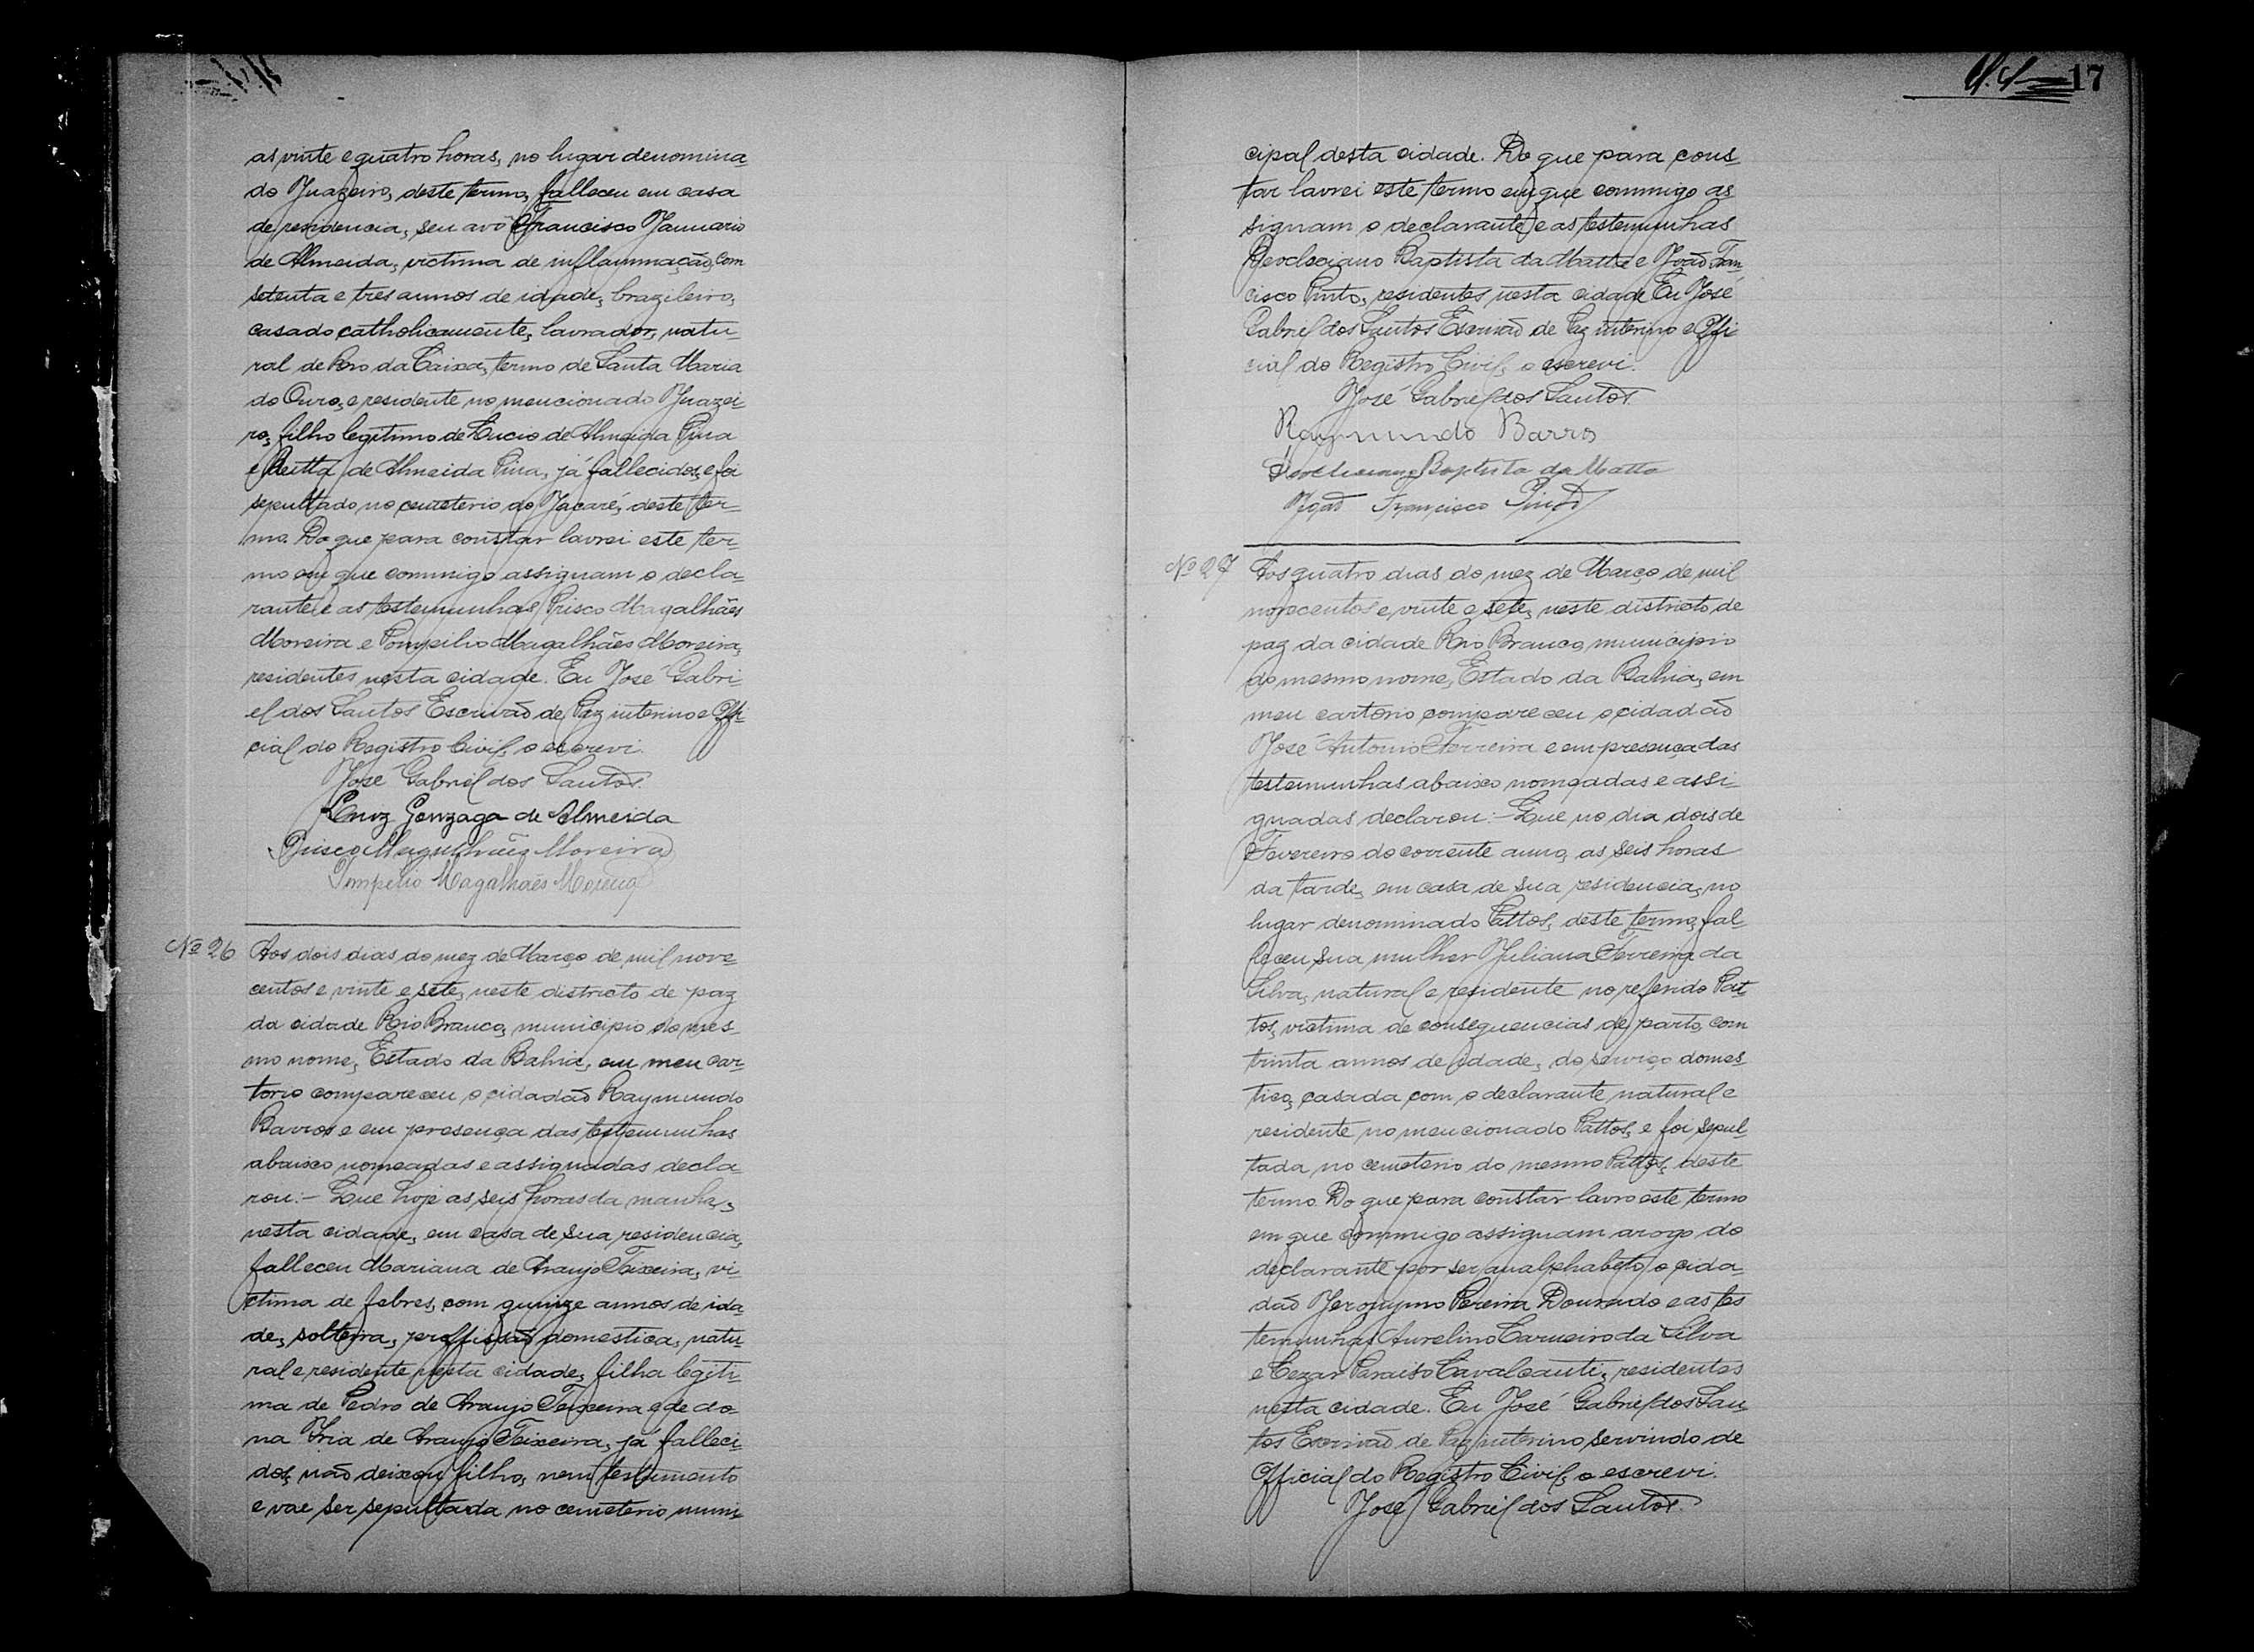 as vinte e quatro horas, no lugar denomina-
do Juazeiro, deste termo, falleceu em casa
de residencia, seu avô Francisco Januario
de Almeida, victima de inflammação, com
setenta e tres annos de idade, brazileiro,
casado catholicamente, lavrador, natu-
ral de Rio da Caixa, termo de Santa Maria
do Ouro, e residente no mencionado Juazei-
ro, filho legitimo de Lucio de Almeida Pina
e de Almeida Pina, já fallecidos, e foi
sepultado no cemeterio do Jacaré, deste ter-
mo. Do que para constar lavrei este ter-
mo em que commigo assignam o decla-
rante e as testemunhas Prisco Magalhães
Moreira e Pompilio Magalhães Moreira,
residentes nesta cidade. Eu José Gabri-
el dos Santos Escrivão de Paz interino e Offi-
cial do Registro Civil, o escrevi.
José Gabriel dos Santos.
Gonzaga de Almeida
Prisco Magalhães Moreira
Pompilio Magalhães Moreira
Nº 26 Aos dois dias do mez de Março de mil nove-
centos e vinte e sete, neste districto de paz
da cidade Rio Branco, municipio do mes-
mo nome, Estado da Bahia, em meu car-
torio compareceu o cidadão Raymundo
Barros e em presença das testemunhas
abaixo nomeadas e assignadas decla-
rou:- Que hoje as seis horas da manhã,
nesta cidade, em casa de sua residencia,
falleceu Mariana de Araujo Teixeira, vi-
ctima de febres, com quinze annos de ida-
de, solteira, proffissão domestica, natu-
ral e residente nesta cidade, filha legiti-
ma de Pedro de Araujo Teixeira e de do-
na Iria de Araujo Teixeira, já falleci-
dos, não deixou filho, nem testamento
e vae ser sepultada no cemeterio muni-
17
cipal desta cidade. Do que para cons-
tar lavrei este termo em que commigo as
signam o declarante e as testemunhas
Deocleciano Baptista da Matta e João Fran
cisco Pinto, residentes nesta cidade. Eu José
Gabriel dos Santos Escrivão de Paz interino e Offi
cial do Registro Civil, o escrevi.
José Gabriel dos Santos.
Raymundo Barros
Deocleciano Baptista da Matta
João Francisco Pinto
Nº 27 Aos quatro dias do mez de Março de mil
novecentos e vinte e sete, neste districto de
paz da cidade Rio Branco, municipio
do mesmo nome, Estado da Bahia, em
meu cartorio compareceu o cidadão
José Antonio Ferreira e em presença das
testemunhas abaixo nomeadas e assi-
gnadas declarou:- Que no dia dois de
Fevereiro do corrente anno, as seis horas
da tarde, em casa de sua residencia, no
lugar denominado Pattos, deste termo, fal-
leceu sua mulher Juliana Ferreira da
Silva, natural e residente no referido Pat-
tos, victima de consequencias de parto, com
trinta annos de idade, do serviço domes-
tico, casada com o declarante, natural e
residente no mencionado Pattos, e foi sepul-
tada no cemeterio do mesmo Pattos, deste
termo. Do que para constar lavro este termo
em que commigo assignam arogo do
declarante por ser analphabeto, o cida-
dão Jeronymo Pereira Dourado e as tes
temunhas Aurelino Carneiro da Silva
e Cezar Paraiso Cavalcanti, residentes
nesta cidade. Eu José Gabriel dos San-
tos Escrivão de Paz interino servindo de
Official do Registro Civil, o escrevi.
José Gabriel dos Santos.